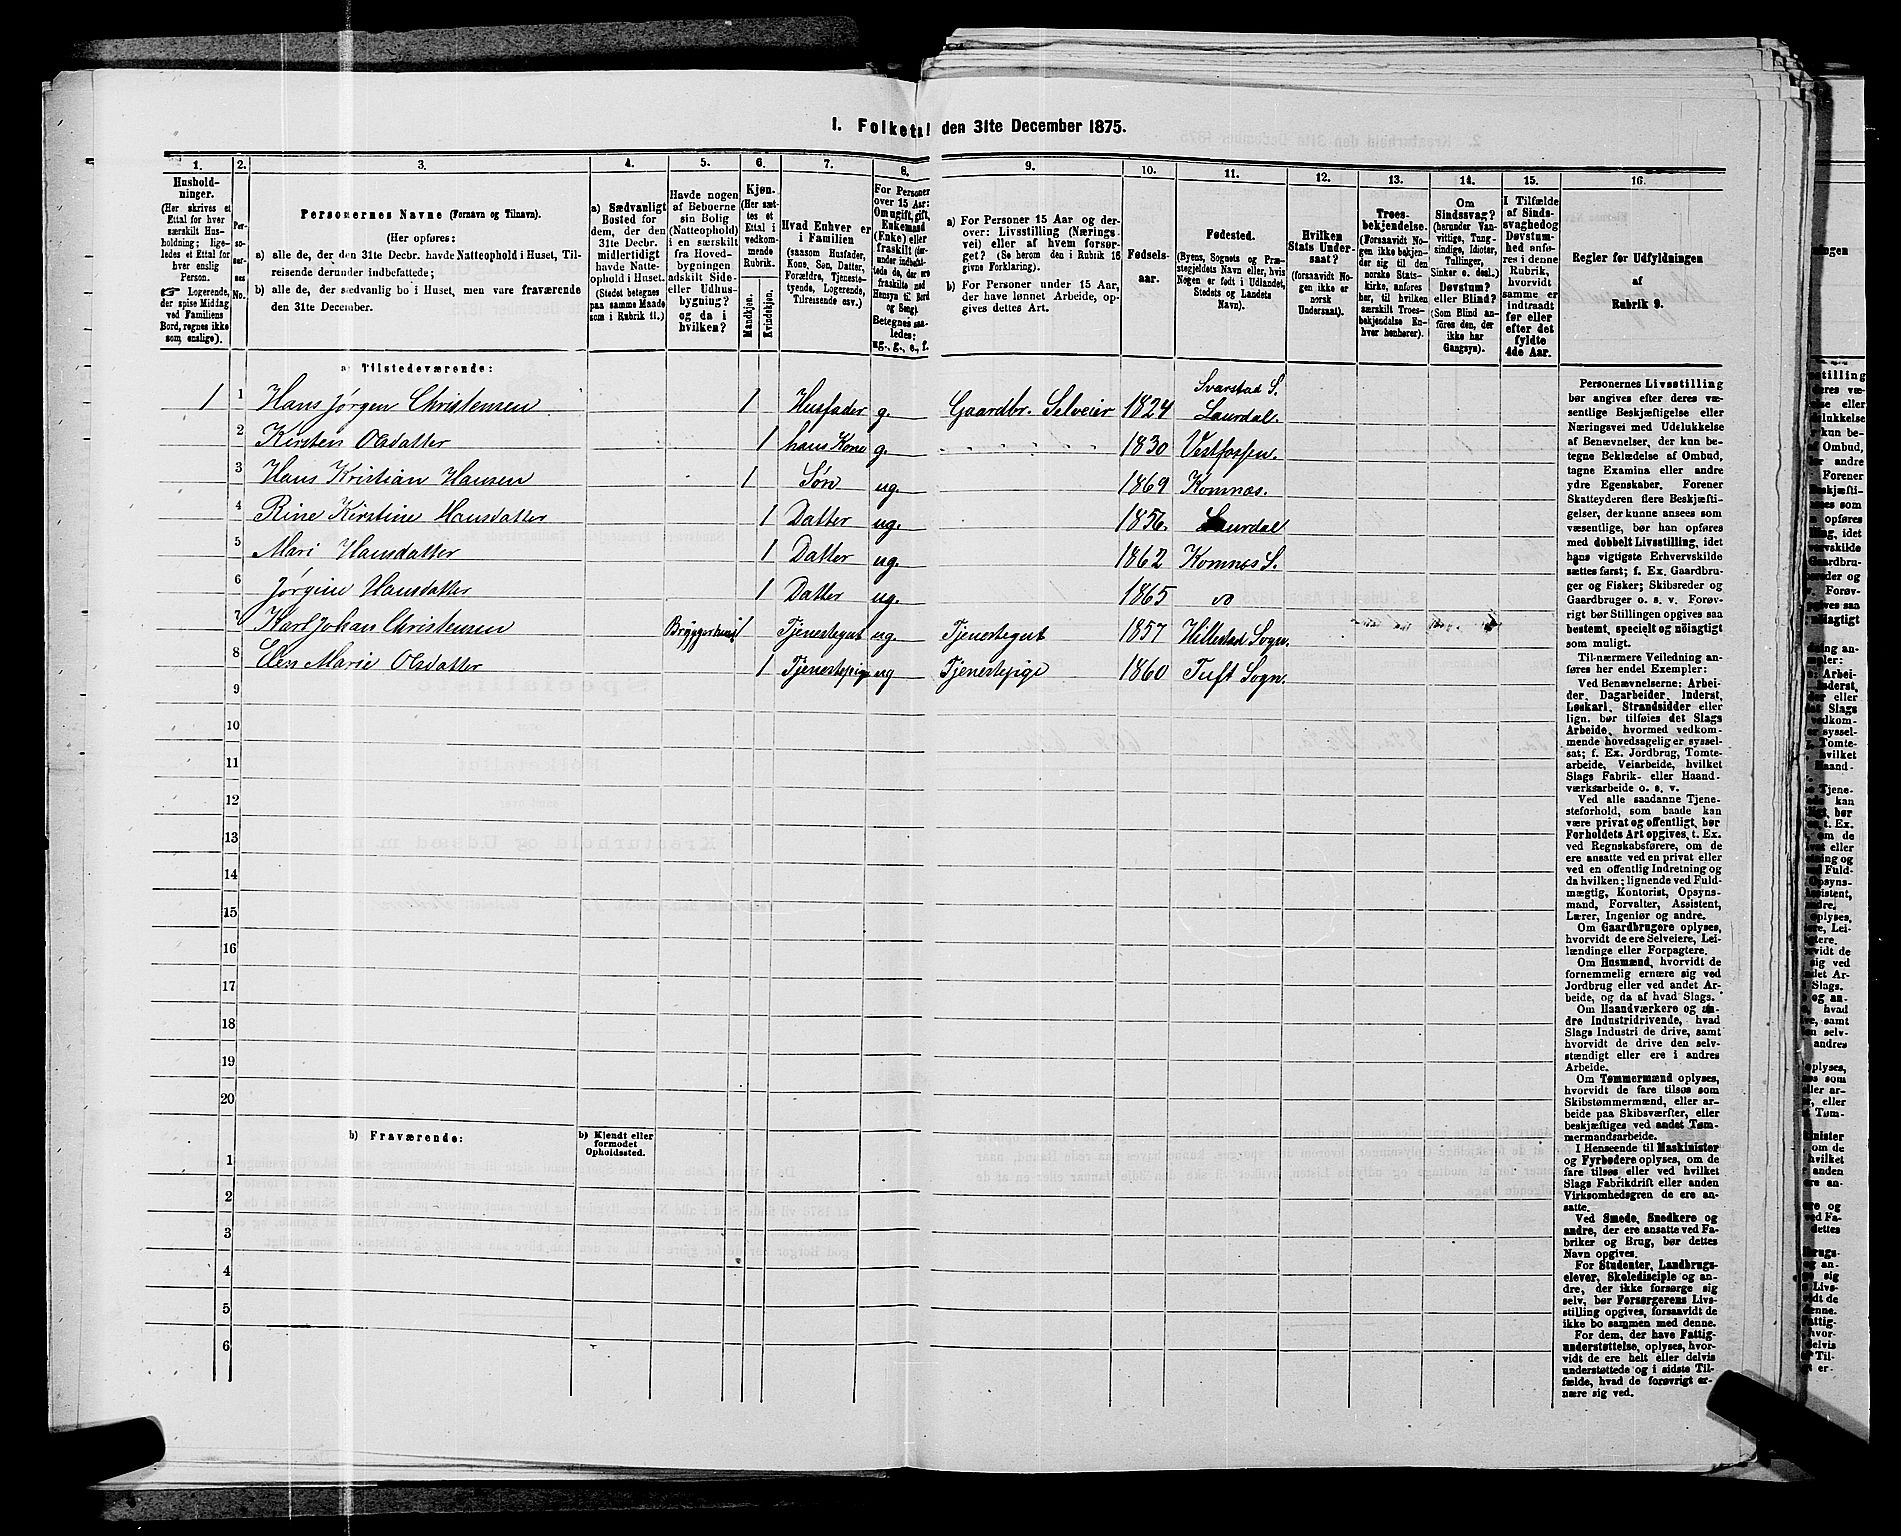 1. Folketal den 31te December 1875.
1. 2. 3. 4. 5. 6. 7. 8. 9. 10. 11. 12. 13. 14. 15. 16.
Husholdninger.
(Her skrives et
Ettal for hver
særskilt Husholdning;
ligeledes et Ettal
for hver
enslig
Person.
☞ Logerende,
der spise Middag
ved Familiens
Bord, regnes ikke
som enslige).
Personernes No.
Personernes Navne (Fornavn og Tilnavn).
(Her opføres:
a) alle de, der den 31te Decbr. havde Natteophold i Huset, Tilreisende
derunder indbefattede;
b) alle de, der sædvanlig bo i Huset, men vare fraværende
den 31te December.
a) Sædvanligt
Bosted for
dem, der den
31te Decbr.
midlertidigt
havde Natteophold
i Huset.
(Stedet betegnes
paa samme Maade
som i Rubrik 11.)
Havde nogen
af Beboerne
sin Bolig
(Natteophold)
i en særskilt
fra Hovedbygningen
adskilt Side-
eller Udhusbygning?
og da i
hvilken?
Kjøn.
(Her sættes
et
Ettal i
vedkommende
Rubrik.
Mandkjøn.
Kvindekjøn.
Hvad Enhver er
i Familien
(saasom Husfader,
Kone, Søn, Datter,
Forældre, Tjenestetyende,
Logerende,
Tilreisende osv.)
For Personer
over 15 Aar:
Om ugift, gift,
Enkemand
(Enke) eller
fraskilt
Betegnes saaledes:
ug., g., e., f.
a) For Personer 15 Aar og derover:
Livsstilling (Næringsvei)
eller af hvem forsørget?
(Se herom den i Rubrik 16
givne Forklaring).
b) For Personer under 15 Aar,
der have lønnet Arbeide, opgives
dettes Art.
Fødselsaar.
Fødested.
(Byens, Sognets og Præstegjeldets
Navn eller, hvis
Nogen er født i Udlandet,
Stedets og Landets
Navn).
Hvilken
Stats Undersaat?
(forsaavidt Nogen
ikke er
norsk
Undersaat).
Troesbekjendelse.
(Forsaavidt Nogen
ikke bekjender
sig til den
norske Statskirke,
anføres
her, til hvilken
særskilt Troesbekjendelse
Enhver
henhører).
Om
Sindssvag?
(herunder Vanvittige,
Tungsindige,
Idioter,
Tullinger,
Sinker o. desl.)
Døvstum?
eller Blind?
(Som Blind anføres
den, der
ikke har
Gangsyn).
I Tilfælde
af Sindssvaghed
og
Døvstumhed
anføres
i denne
Rubrik,
hvorvidt
samme er
indtraadt
før eller
efter det
fyldte
4de Aar.
Regler for Udfyldningen
af
Rubrik 9.
a) Tilstedeværende:
1 1 Hans Jørgen Christensen 1 Husfader g. Gaardbr. Selveier 1824 Svarstad S. Laurdal.
2 Kirsten Olsdatter 1 hans Kone g. 1830 Vestfossen.
3 Hans Kristian Hansen 1 Søn ug. 1869 Komnæs.
4 Rine Kirstine Hansdatter 1 Datter ug. 1856. Laurdal
5 Mari Hansdatter 1 Datter ug. 1862 Komnæs S.
6 Jørgine Hansdatter 1 Datter ug. 1865 do
7 Karl Johan Christensen Bryggerhuus 1 Tjenestegut ug. Tjenestegut 1857 Hillestad Sogn.
8 Elen Marie Olsdatter 1 Tjenestepige ug Tjenestepige 1860 Tuft Sogn.
9
10
11
12
13
14
15
16
17
18
19
20
b) Fraværende:
b) Kjendt eller
formodet
Opholdssted.
1
2
3
4
5
6
Personernes Livsstilling
bør angives efter deres væsentlige
Beskjæftigelse eller
Næringsvei med Udelukkelse
af Benævnelser, der kun betegne
Beklædelse af Ombud,
tagne Examina eller andre
ydre Egenskaber. Forener
Skatteyderen flere Beskjæftigelser,
der kunne ansees som
væsentlige, bør han opføres
med dobbelt Livsstilling, idet
hans vigtigste Erhvervskilde
sættes først; f. Ex. Gaardbruger
og Fisker; Skibsreder og
Gaardbruger o. s. v. Forøvrigt
bør Stillingen opgives saa
bestemt, specielt og nøiagtigt
som muligt.
Til nærmere Veiledning anføres
her endel Exempler:
Ved Benævnelserne: Arbeider,
Dagarbeider, Inderst,
Løskarl, Strandsidder eller
lign. bør tilføies det Slags
Arbeide, hvormed vedkommende
hovedsagelig er sysselsat;
f. Ex. Jordbrug, Tomtearbeide,
Veiarbeide, hvilket
Slags Fabrik- eller Haandværksarbeide
o. s. v.
Ved alle saadanne Tjenesteforhold,
som baade kan
være privat og offentligt, bør
Forholdets Art opgives, t. Ex.
ved Regnskabsførere, om de
ere ansatte ved en privat eller
ved en offentlig Indretning og
da hvilken; lignende ved Fuldmægtig,
Kontorist, Opsynsmand,
Forvalter, Assistent,
Lærer, Ingeniør og andre.
Om Gaardbrugere oplyses,
hvorvidt de ere Selveiere, Leilændinge
eller Forpagtere.
Om Husmænd, hvorvidt de
fornemmelig ernære sig ved
Jordbrug eller ved andet Arbeide,
og da af hvad Slags.
Om Haandværkere og andre
Industridrivende, hvad
Slags Industri de drive, samt
hvorvidt de drive den selvstændigt
eller ere i andres
Arbeide.
Om Tømmermænd oplyses,
hvorvidt de fare tilsøs som
Skibstømmermænd, eller arbeide
paa Skibsværfter, eller
beskjæftiges ved andet Tømmermandsarbeide.
I Henseende til Maskinister
og Fyrbødere oplyses, om de
fare tilsøs eller ved hvilket
Slags Fabrikdrift eller anden
Virksomhedsgren de ere ansatte.
Ved Smede, Snedkere og
andre, der ere ansatte ved Fabriker
og Brug, bør dettes
Navn opgives.
For Studenter, Landbrugselever,
Skoledisciple og andre,
der ikke forsørge sig
selv, bør Forsørgerens Livsstilling
opgives, forsaavidt de
ikke bo sammen med denne.
For dem, der have Fattigunderstøttelse,
oplyses, hvorvidt
de ere helt eller delvis
understøttede og i sidste Tilfælde,
hvad de forøvrigt ernære
sig ved.